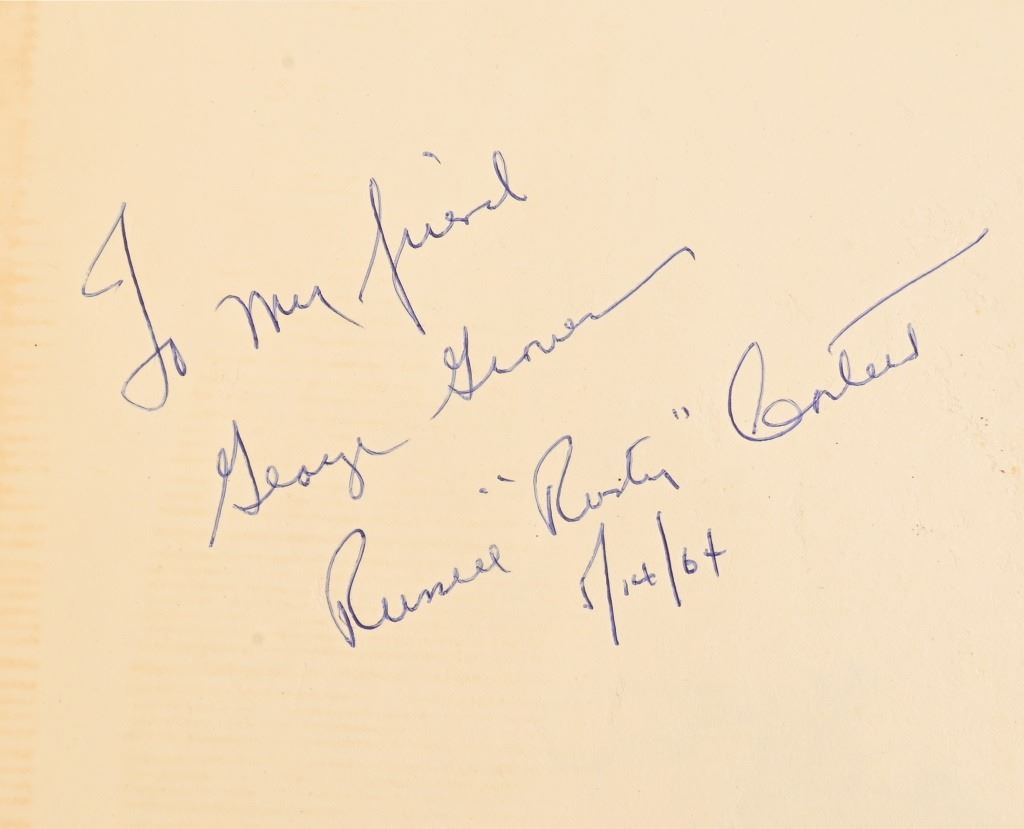 To my friend
George Grover
Russell "Rusty"
5/14/64